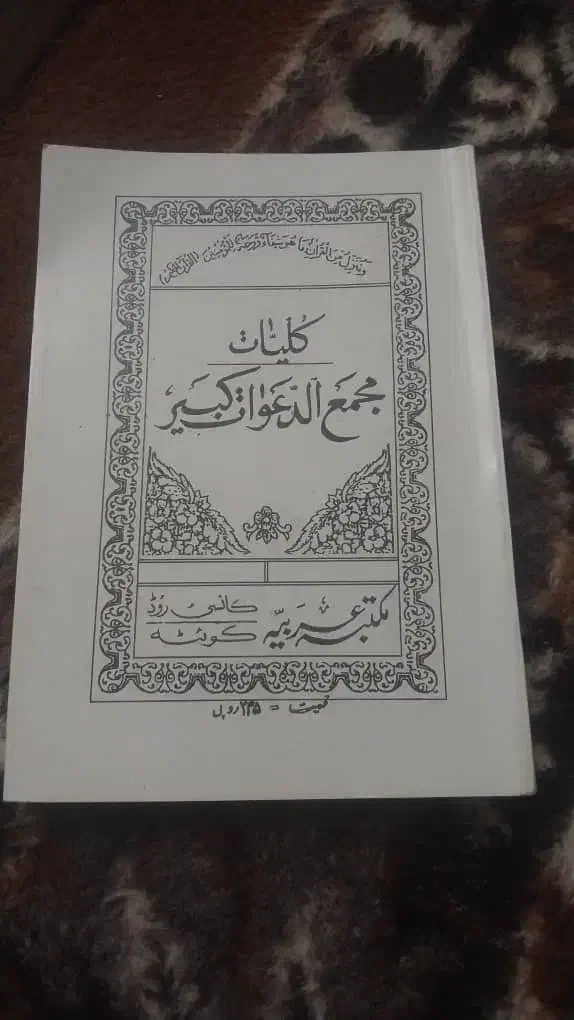 وَنُنَزِّلُ مِنَ الْقُرْآنِ مَا هُوَ شِفَاءٌ وَرَحْمَةٌ لِّلْمُؤْمِنِينَ
كُلیّات
مجمَعَ الدّعَوَات کَبِیر
مکتبہ عَرَبیّہ
کانسی روڈ
کوئٹہ
قیمت = ۲۴۵ روپے